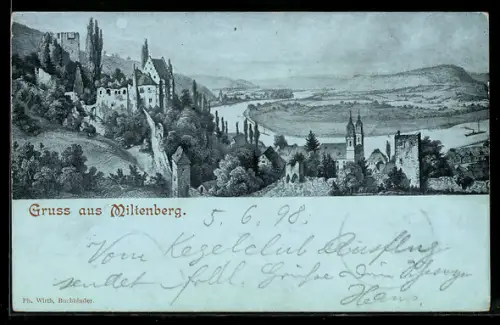 Gruss aus Miltenberg.
5. 6. 98.
Vom Kegelclub Ausflug
sendet frdl. Grüße Dein
Hans.
Ph. Wirth, Buchbinder.